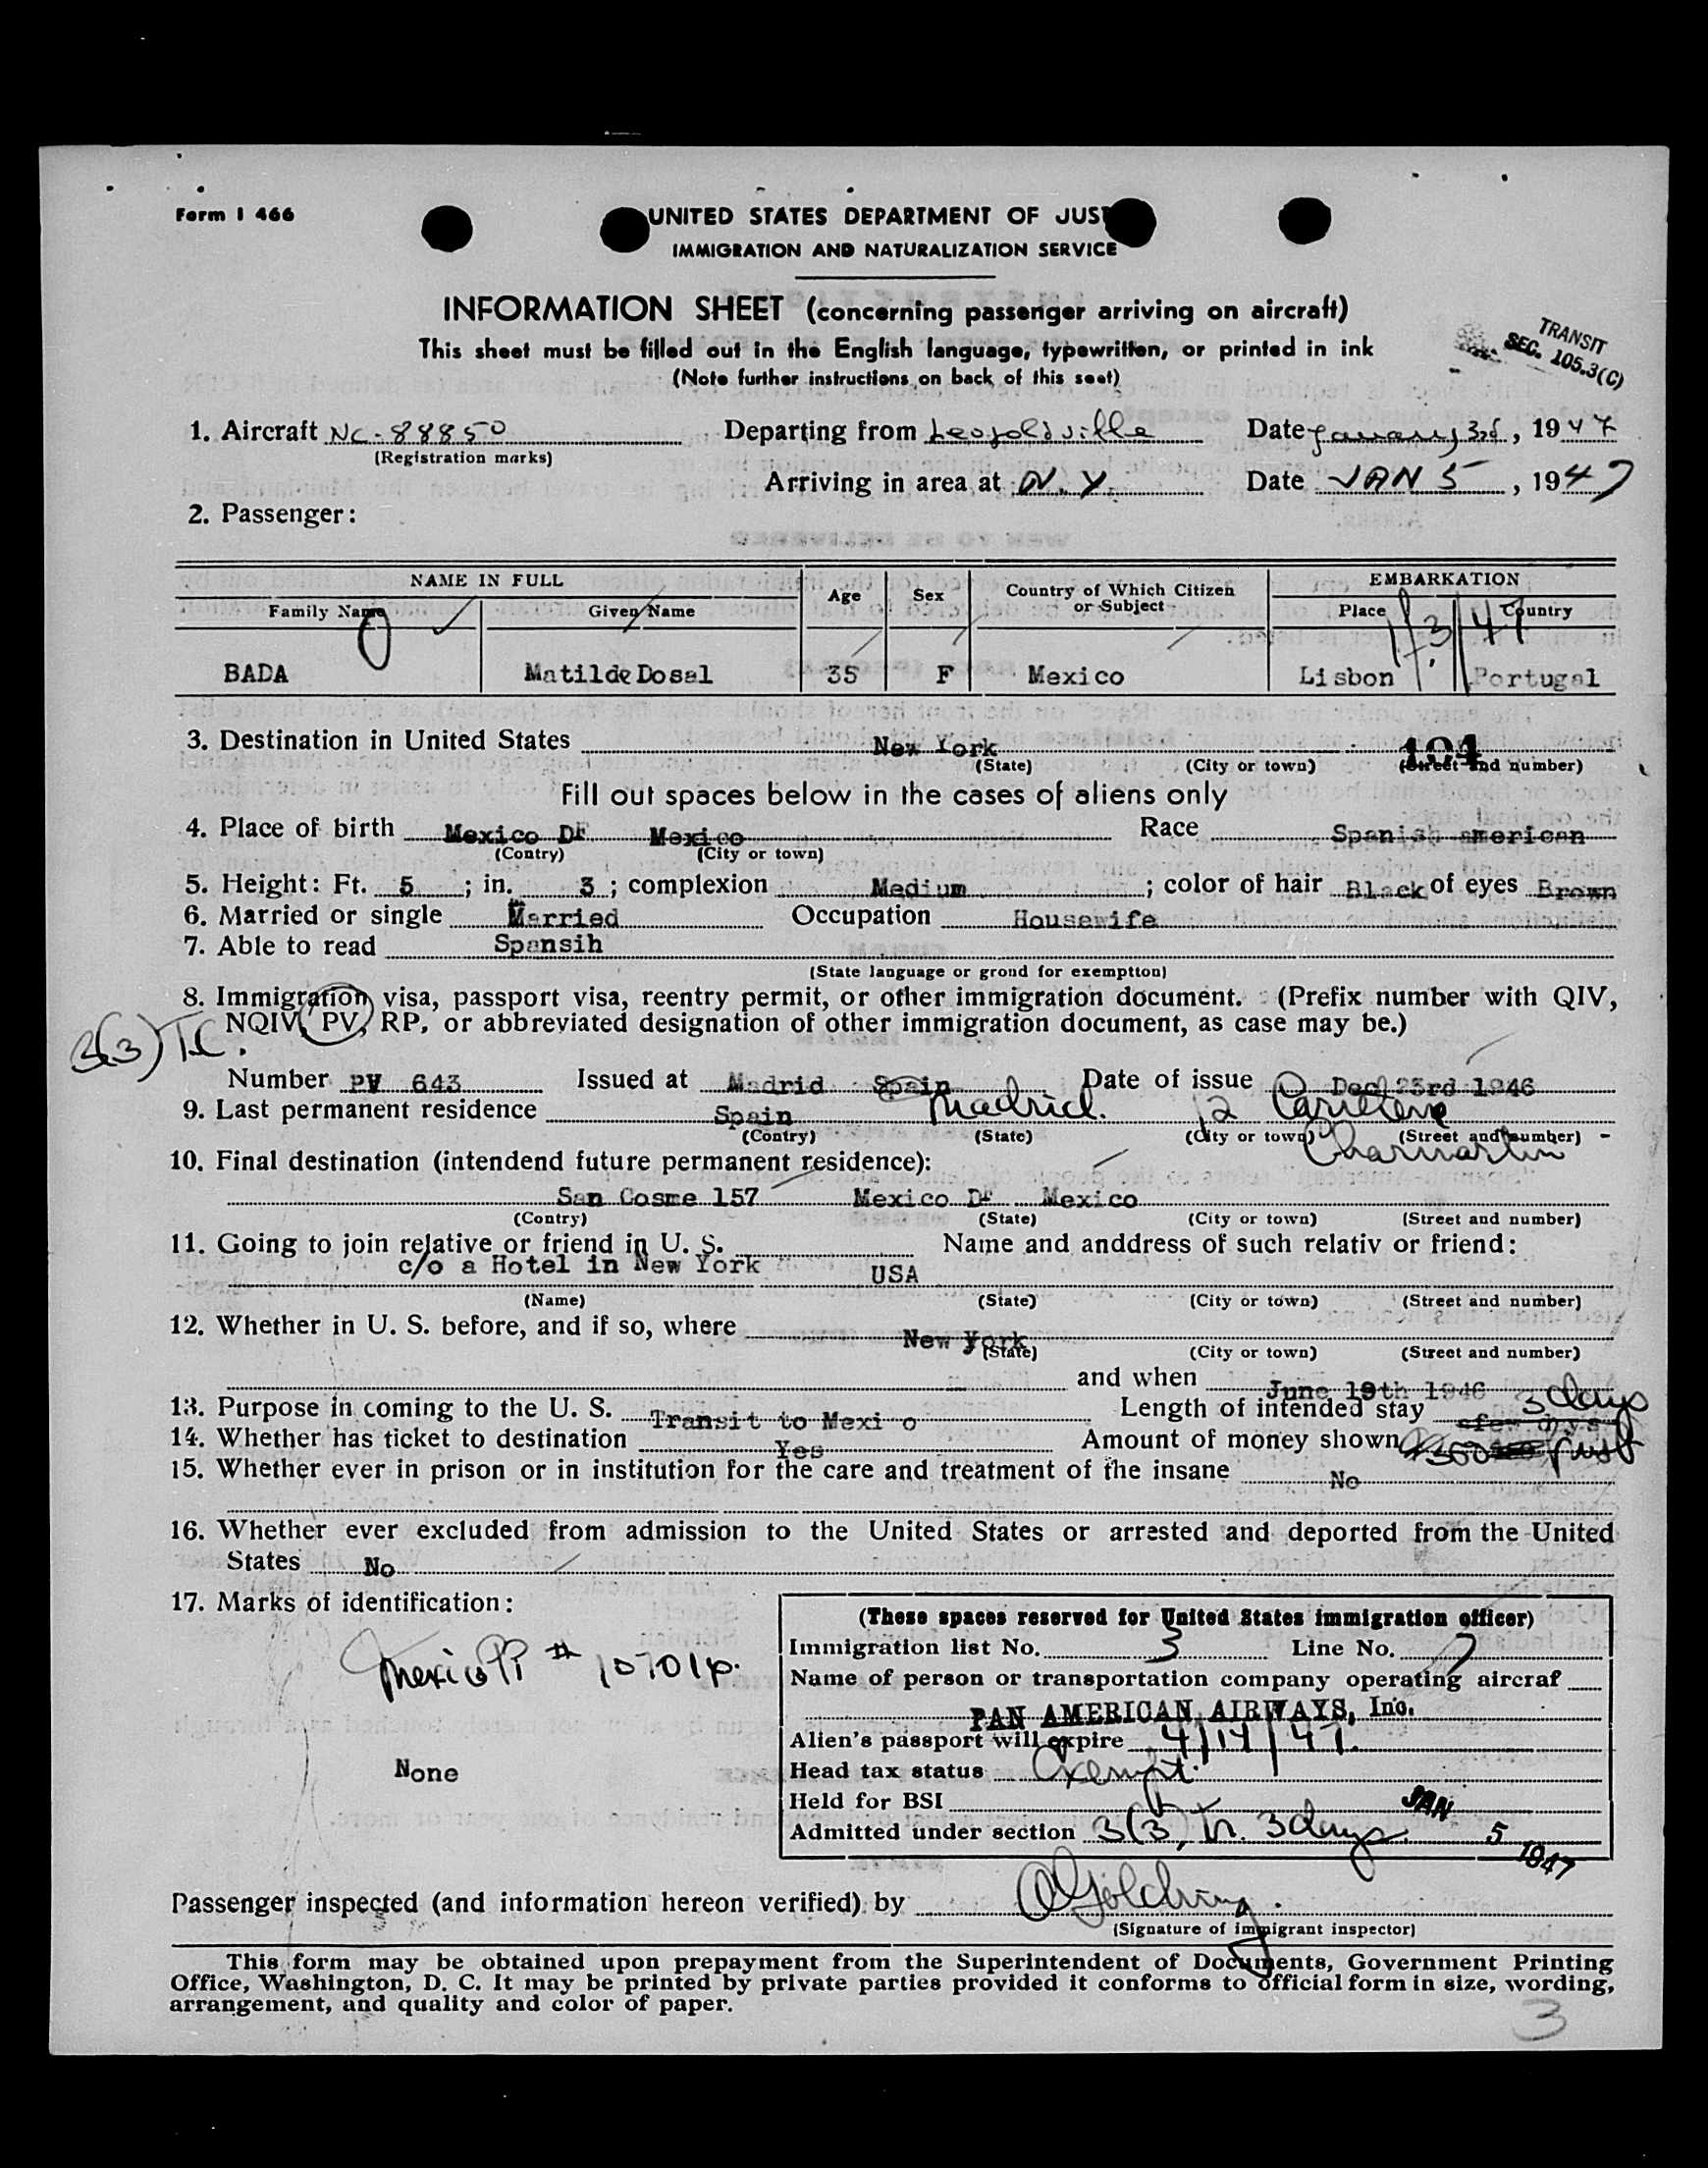 Form I 466
UNITED STATES DEPARTMENT OF JUST
IMMIGRATION AND NATURALIZATION SERVICE
INFORMATION SHEET (concerning passenger arriving on aircraft)
This sheet must be filled out in the English language, typewritten, or printed in ink
(Note further instructions on back of this seet)
TRANSIT
SEC. 105.3(C)
1. Aircraft NC-88850 Departing from Leopoldville Date January 3rd, 1947
(Registration marks)
Arriving in area at N.Y. Date JAN 5, 1947
2. Passenger:
NAME IN FULL Age Sex Country of Which Citizen or Subject EMBARKATION
Family Name Given Name Place Country
1/3/47
BADA Matilde Dosal 35 F Mexico Lisbon Portugal
3. Destination in United States New York 104
(State) (City or town) (Street and number)
Fill out spaces below in the cases of aliens only
4. Place of birth Mexico DF Mexico Race Spanish american
(Contry) (City or town)
5. Height: Ft. 5 ; in. 3 ; complexion Medium ; color of hair Black of eyes Brown
6. Married or single Married Occupation Housewife
7. Able to read Spansih
(State language or grond for exemption)
8. Immigration visa, passport visa, reentry permit, or other immigration document. (Prefix number with QIV,
NQIV, PV, RP, or abbreviated designation of other immigration document, as case may be.)
3(3)
Number PV 643 Issued at Madrid Spain Date of issue Dec 23rd 1946
9. Last permanent residence Spain Madrid. 12
(Contry) (State) (City or town) (Street and number)
Charmartin
10. Final destination (intendend future permanent residence):
San Cosme 157 Mexico DF Mexico
(Contry) (State) (City or town) (Street and number)
11. Going to join relative or friend in U. S. Name and anddress of such relativ or friend:
c/o a Hotel in New York USA
(Name) (State) (City or town) (Street and number)
12. Whether in U. S. before, and if so, where New York
(State) (City or town) (Street and number)
and when June 19th 1946
13. Purpose in coming to the U. S. Transit to Mexi o Length of intended stay 3 days
14. Whether has ticket to destination Yes Amount of money shown
15. Whether ever in prison or in institution for the care and treatment of the insane No
16. Whether ever excluded from admission to the United States or arrested and deported from the United
States No
17. Marks of identification:
None
(These spaces reserved for United States immigration officer)
Immigration list No. 3 Line No. 7
Name of person or transportation company operating aircraf
PAN AMERICAN AIRWAYS, Inc.
Alien's passport will expire 4/14/47.
Head tax status Exempt.
Held for BSI
Admitted under section 3(3) Tr. 3 days JAN 5 1947
Passenger inspected (and information hereon verified) by
(Signature of immigrant inspector)
This form may be obtained upon prepayment from the Superintendent of Documents, Government Printing
Office, Washington, D. C. It may be printed by private parties provided it conforms to official form in size, wording,
arrangement, and quality and color of paper.
3